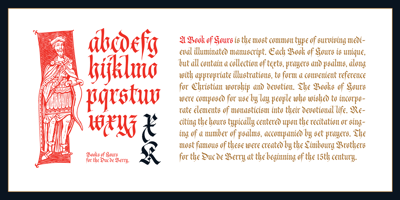 abcdefg
hijklmo
pqrstuv
wxyz x
K
Books of Hours
for the Duc de Berry.
A Book of Hours is the most common type of surviving medi-
eval illuminated manuscript. Each Book of Hours is unique,
but all contain a collection of texts, prayers and psalms, along
with appropriate illustrations, to form a convenient reference
for Christian worship and devotion. The Books of Hours
were composed for use by lay people who wished to incorpo-
rate elements of monasticism into their devotional life. Re-
citing the hours typically centered upon the recitation or sing-
ing of a number of psalms, accompanied by set prayers. The
most famous of these were created by the Limbourg Brothers
for the Duc de Berry at the beginning of the 15th century.